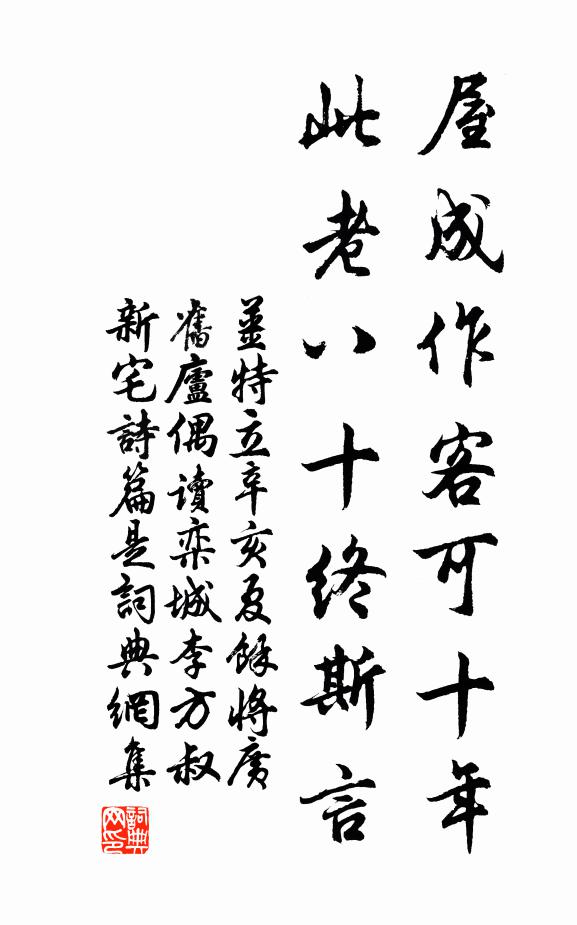 屋成作客可十年
此老八十終斯言
姜特立辛亥夏餘將廣
舊廬偶讀欒城李方叔
新宅詩篇是詞典網集
詞典網印